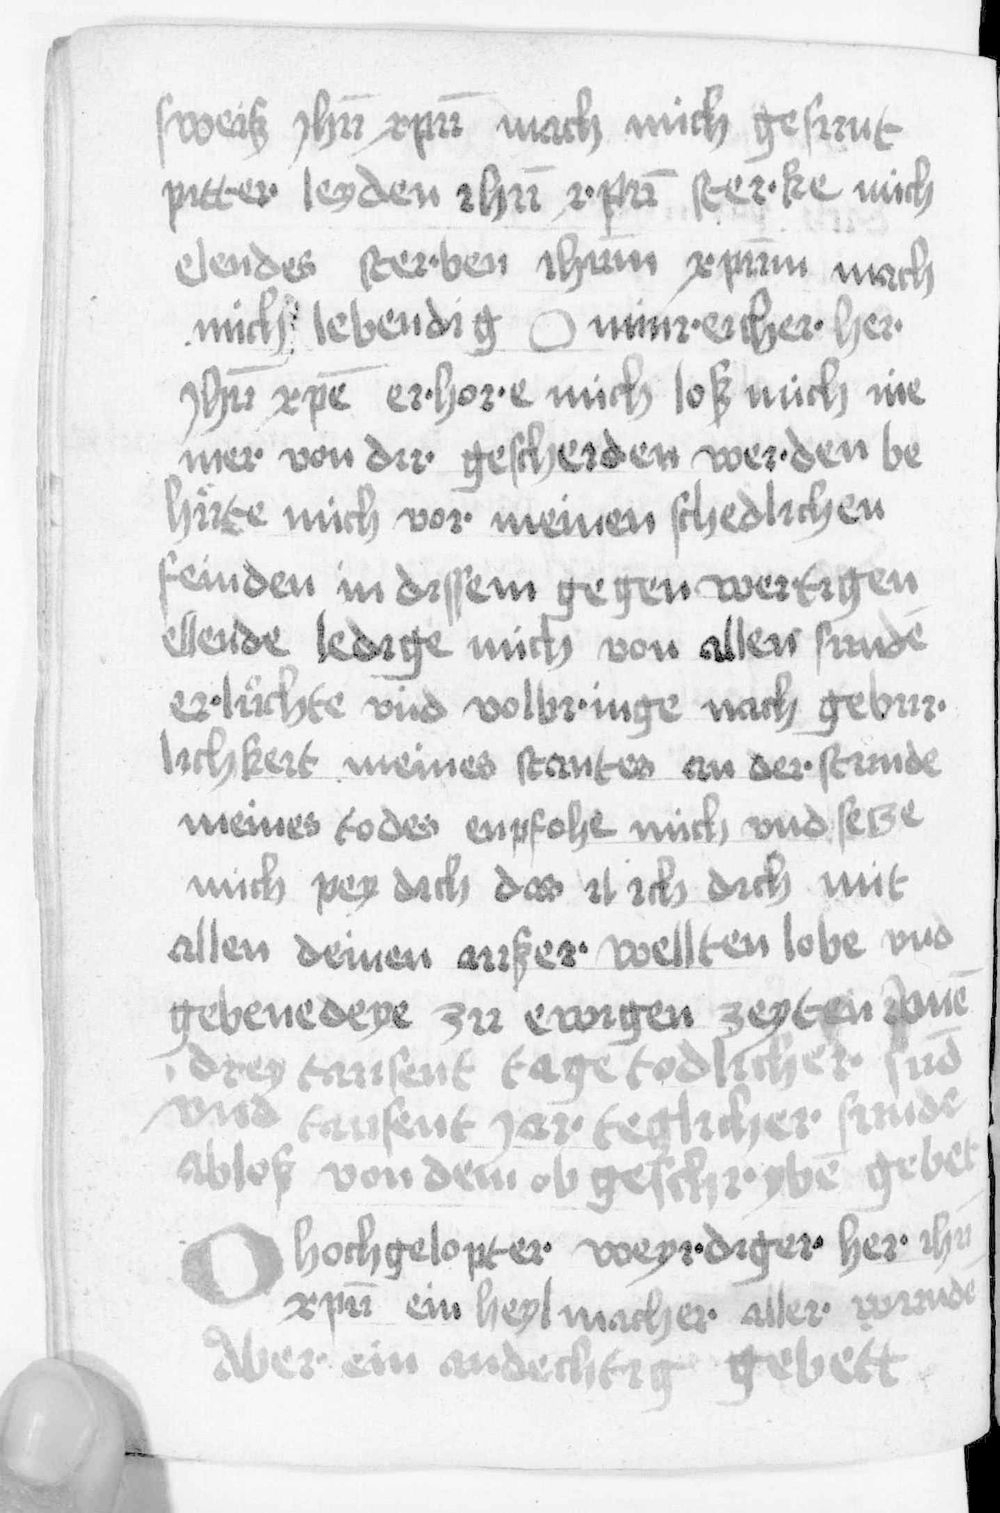 sweiß yhū xpū mach mich gesunt
pitter leyden ihū xpū sterke mich
elendes sterben ihūm xpūm mach
mich lebendig O minreicher her
yhū xpē erhore mich loß mich nie
mer von dir gescheiden werden be
hüte mich vor meinen schedlichen
feinden in dissem gegenwertigen
ellende ledige mich von allen sundē
erlüchte und volbringe nach gebur
lichkeit meines stantes an der stunde
meines todes enpfohe mich und seze
mich pey dich das ich dich mit
allen deinen außer wellten lobe und
gebenedeye zu ewigen zeyten Amē
drey tausent tage todlicher sūd
und tausent yar teglicher sunde
abloß von dem ob geschrybē gebet
O hochgelopter weyrdiger her ihū
xpū ein heylmacher aller wunde
Aber ein andechtig gebett